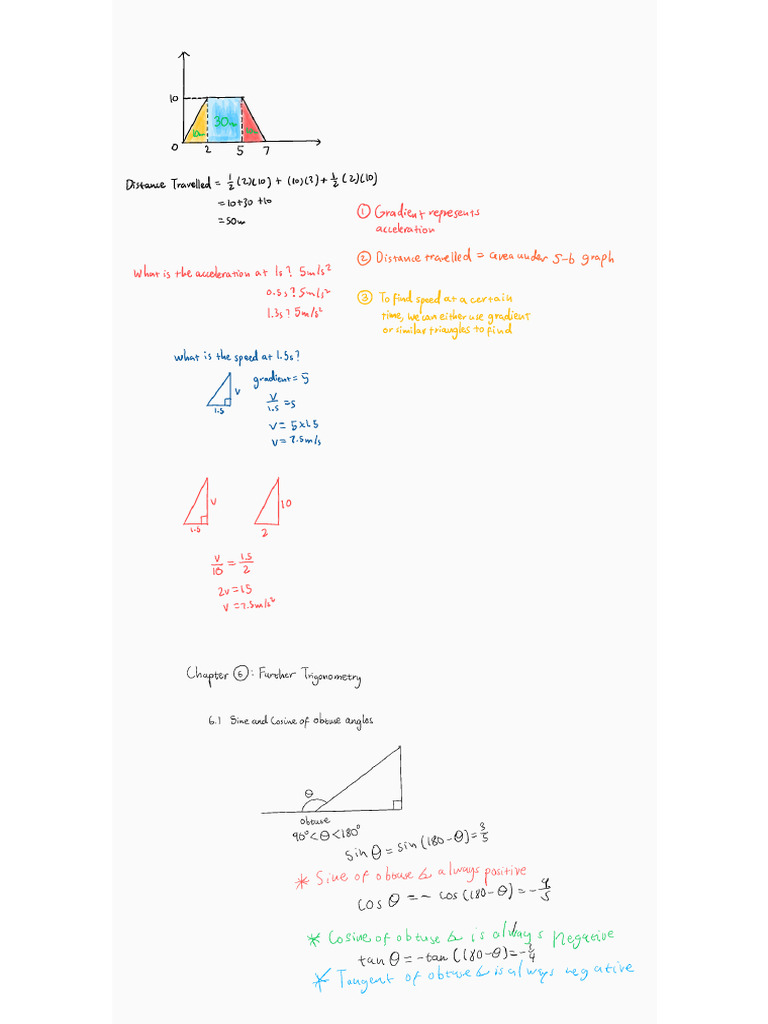 10
10m 30m
0 2 5 7
Distance Travelled = 1/2 (2)(10) + (10)(3) + 1/2 (2)(10)
= 10+30+10
= 50m
① Gradient represents
acceleration
② Distance travelled = area under s-b graph
What is the acceleration at 1s? 5m/s²
0.5s? 5m/s²
1.3s? 5m/s²
③ To find speed at a certain
time, we can either use gradient
or similar triangles to find
What is the speed at 1.5s?
gradient = 5
V
1.5
V/1.5 = 5
V = 5×1.5
V = 7.5m/s
V
1.5
10
2
V/10 = 1.5/2
2V = 15
V = 7.5m/s²
Chapter ⑥: Further Trigonometry
6.1 Sine and Cosine of obtuse angles
θ
obtuse
90° < θ < 180°
sin θ = sin (180-θ) = 3/5
* Sine of obtuse ∠ always positive
cos θ = - cos (180-θ) = - 4/5
* Cosine of obtuse ∠ is always negative
tan θ = -tan (180-θ) = - 3/4
* Tangent of obtuse ∠ is always negative